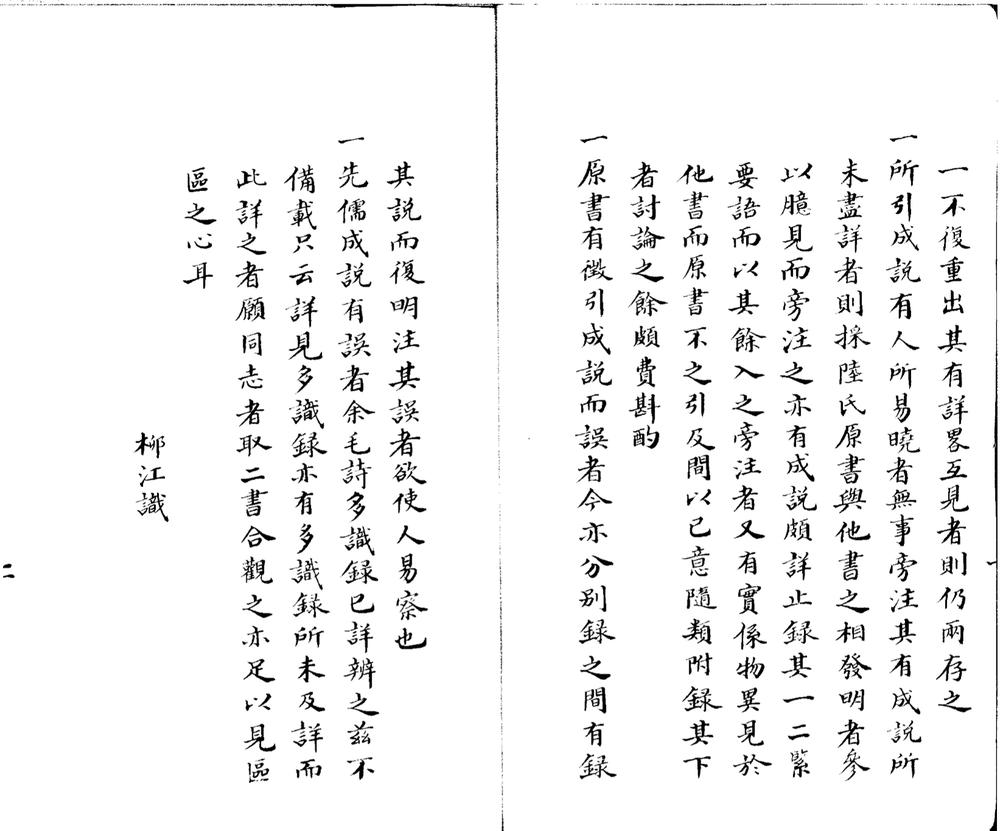 一不復重出其有詳畧互見者則仍兩存之
一所引成説有人所易曉者無事旁注其有成説所
未盡詳者則採陸氏原書與他書之相發明者參
以臆見而旁注之亦有成説頗詳止録其一二緊
要語而以其餘入之旁注者又有實係物異見於
他書而原書不之引及間以已意隨類附録其下
者討論之餘頗費斟酌
一原書有徵引成説而誤者今亦分别録之間有録
其説而復明注其誤者欲使人易察也
一先儒成説有誤者余毛詩多識録已詳辨之兹不
備載只云詳見多識録亦有多識録所未及詳而
此詳之者願同志者取二書合觀之亦足以見區
區之心耳
柳江識
一
二